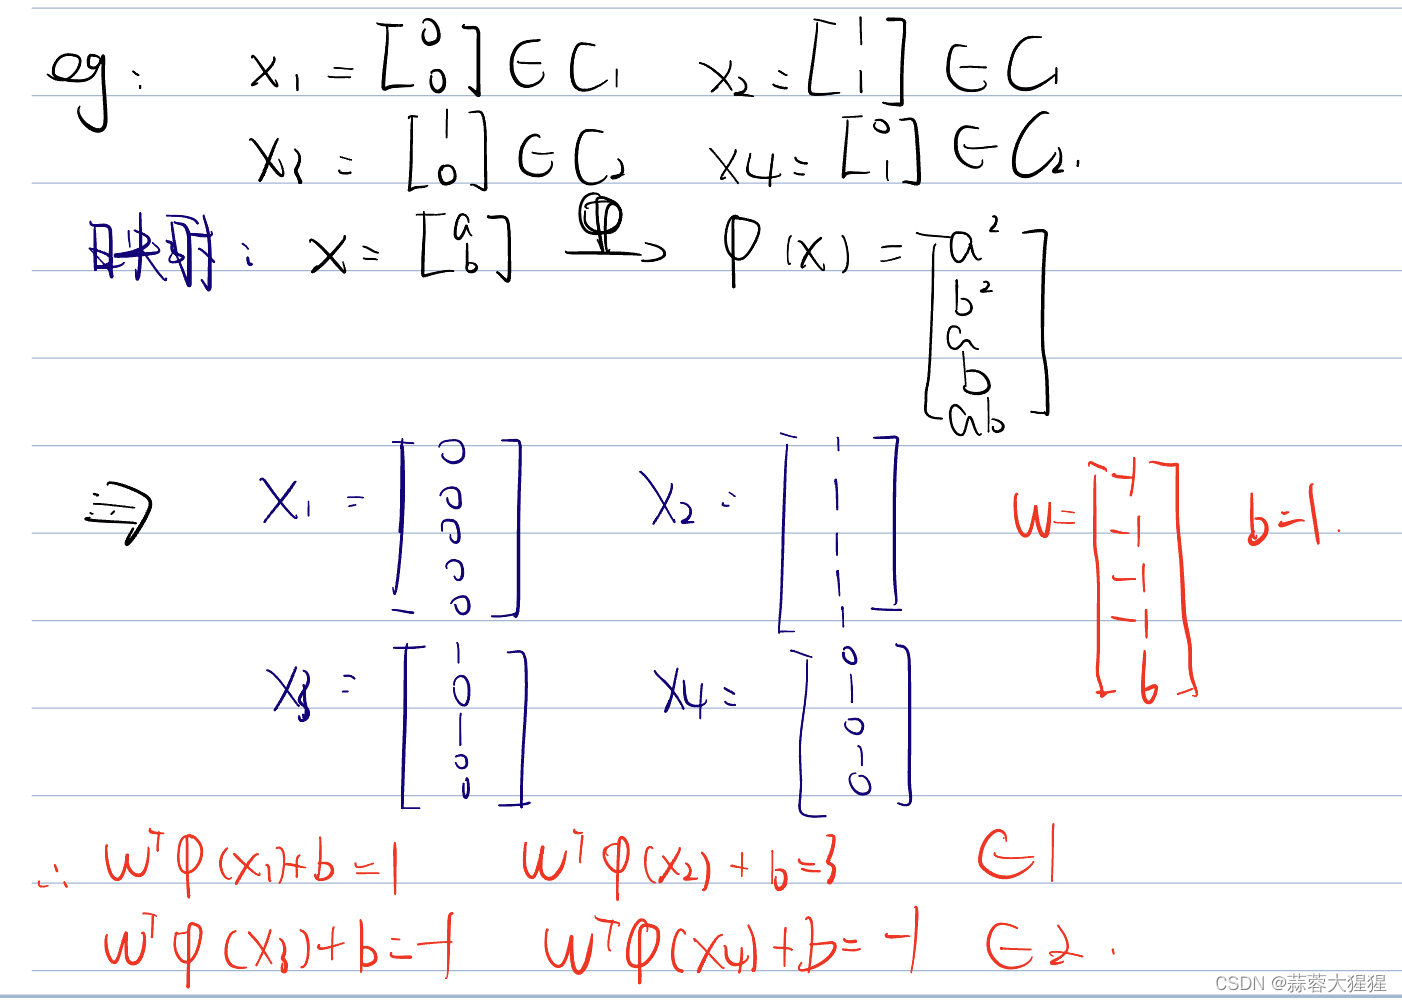 eg: x₁ = [0 0] ∈ C₁ x₂ = [1 1] ∈ C₁
x₃ = [1 0] ∈ C₂ x₄ = [0 1] ∈ C₂.
映射: x = [a b] —φ→ φ(x) = [a² b² a b ab]
⇒ x₁ = [0 0 0 0 0] x₂ = [1 1 1 1 1] W = [-1 -1 -1 -1 6] b=1.
x₃ = [1 0 1 0 0] x₄ = [0 1 0 1 0]
∴ Wᵀφ(x₁)+b=1 Wᵀφ(x₂)+b=3 ∈1
Wᵀφ(x₃)+b=-1 Wᵀφ(x₄)+b=-1 ∈2.
CSDN @蒜蓉大猩猩